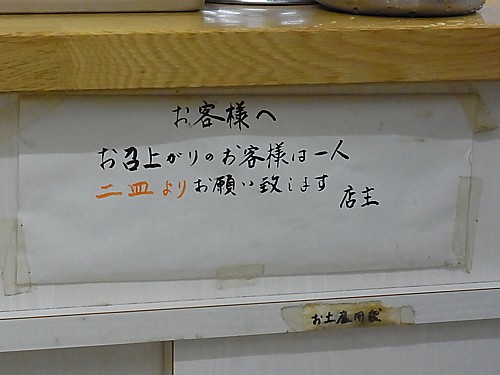 お客様へ
お召上がりのお客様は一人
二皿よりお願い致します
店主
お土産用袋